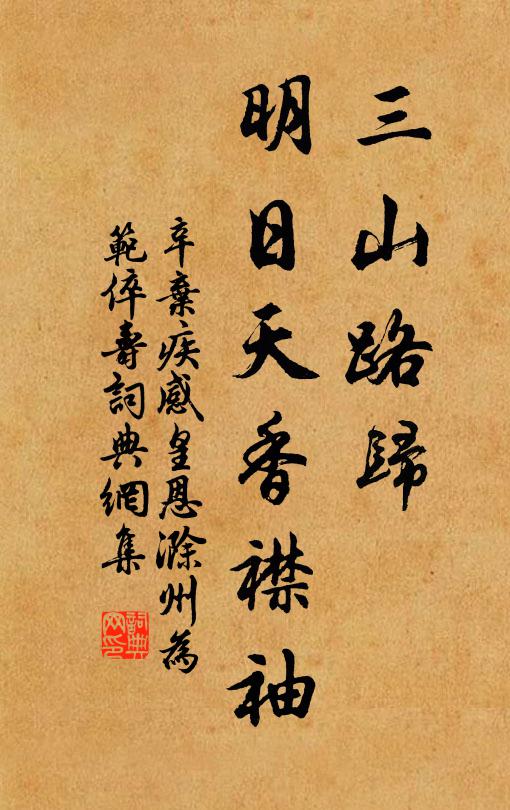 三山路歸
明日天香襟袖
辛棄疾感皇恩滁州為
範倅壽詞典網集
詞典網印